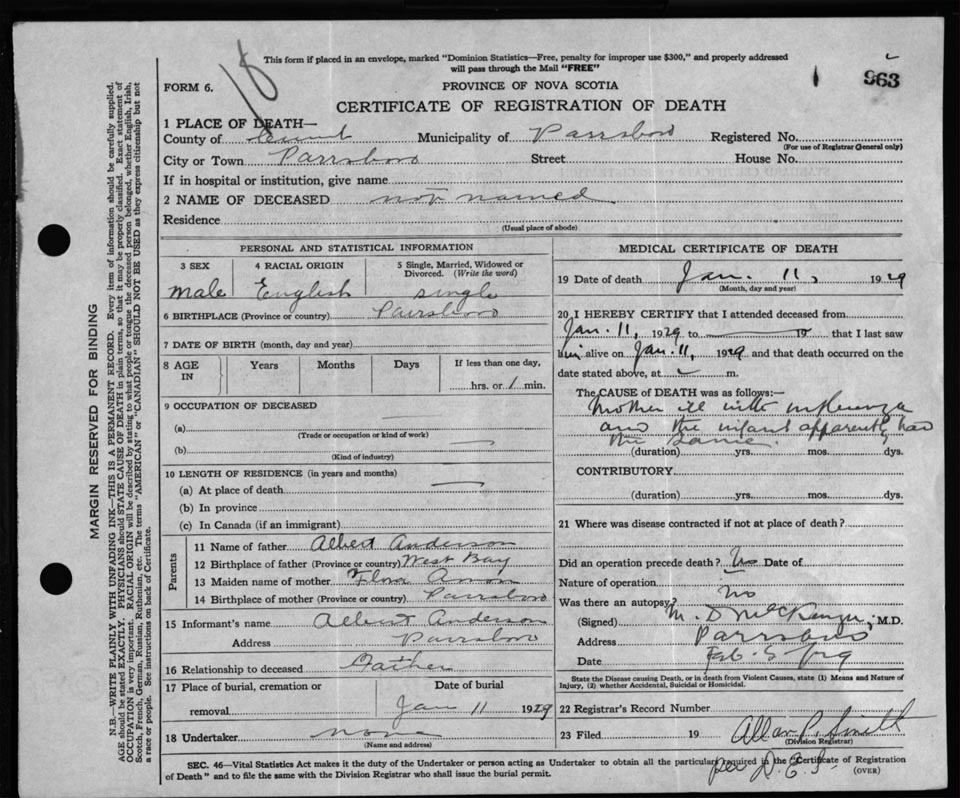 18
This form if placed in an envelope, marked "Dominion Statistics—Free, penalty for improper use $300," and properly addressed
will pass through the Mail "FREE"
963
FORM 6.
PROVINCE OF NOVA SCOTIA
CERTIFICATE OF REGISTRATION OF DEATH
1 PLACE OF DEATH—
County of Cumb Municipality of Parrsboro Registered No.
(For use of Registrar General only)
City or Town Parrsboro Street House No.
If in hospital or institution, give name
2 NAME OF DECEASED not named
Residence
(Usual place of abode)
MARGIN RESERVED FOR BINDING
N.B.—WRITE PLAINLY WITH UNFADING INK—THIS IS A PERMANENT RECORD. Every item of information should be carefully supplied.
AGE should be stated EXACTLY. PHYSICIANS should STATE CAUSE OF DEATH in plain terms, so that it may be properly classified. Exact statement of
OCCUPATION is very important. RACIAL ORIGIN will be described by stating to what people or tongue the deceased person belonged, whether English, Irish,
Scotch, French, German, Russian, Ruthenian, etc. The terms "AMERICAN" or "CANADIAN" SHOULD NOT BE USED as they express citizenship but not
a race or people. See instructions on back of Certificate.
PERSONAL AND STATISTICAL INFORMATION
3 SEX
male
4 RACIAL ORIGIN
English
5 Single, Married, Widowed or
Divorced. (Write the word)
single
6 BIRTHPLACE (Province or country) Parrsboro
7 DATE OF BIRTH (month, day and year)
8 AGE
IN
Years Months Days
If less than one day,
hrs. or 1 min.
9 OCCUPATION OF DECEASED
(a)
(Trade or occupation or kind of work)
(b)
(Kind of industry)
10 LENGTH OF RESIDENCE (in years and months)
(a) At place of death
(b) In province
(c) In Canada (if an immigrant)
Parents
11 Name of father Albert Anderson
12 Birthplace of father (Province or country) West Bay
13 Maiden name of mother Flora
14 Birthplace of mother (Province or country) Parrsboro
15 Informant's name Albert Anderson
Address Parrsboro
16 Relationship to deceased Father
17 Place of burial, cremation or
removal
Date of burial
Jan 11 1929
18 Undertaker none
(Name and address)
MEDICAL CERTIFICATE OF DEATH
19 Date of death Jan. 11, 1929
(Month, day and year)
20 I HEREBY CERTIFY that I attended deceased from
Jan. 11, 1929 to 19 that I last saw
him alive on Jan. 11, 1929 and that death occurred on
date stated above, at m.
The CAUSE OF DEATH was as follows:
Mother ill with influenza
and the infant apparently had
the same.
(duration) yrs. mos. dys.
CONTRIBUTORY
(duration) yrs. mos. dys.
21 Where was disease contracted if not at place of death?
Did an operation precede death? No Date of
Nature of operation
Was there an autopsy? No
(Signed) M. D McKenzie, M.D.
Address Parrsboro
Date Feb. 5
State the Disease causing Death, or in death from Violent Causes, state (1) Means and Nature of
Injury, (2) whether Accidental, Suicidal or Homicidal.
22 Registrar's Record Number
23 Filed 19 Allan P. Smith
(Division Registrar)
per D. E. S.
SEC. 46—Vital Statistics Act makes it the duty of the Undertaker or person acting as Undertaker to obtain all the particulars required in the "Certificate of Registration
of Death" and to file the same with the Division Registrar who shall issue the burial permit.
(OVER)